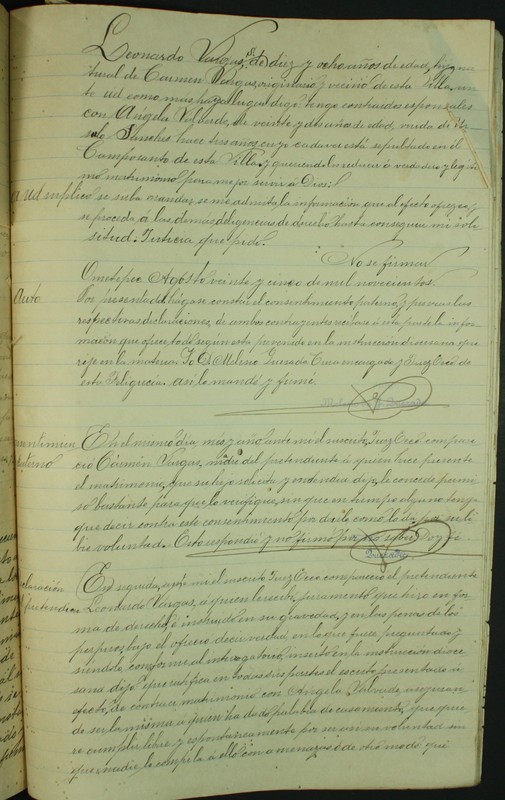 Leonardo Vargas, de diez y ocho años de edad, hijo na
tural de Carmen Vargas, originario y vecino de esta Villa, an
te Ud como mas haya lugar digo: tengo contraidos esponsales
con Angela Valverde, de veinte y dos años de edad, viuda de
Sanchez hace tres años, cuyo cadaver está sepultado en el
Camposanto de esta Villa, y queriendo reducir á verdadero y legiti
mo matrimonio para mejor servir á Dios:
A Ud suplico se sirva mandar se me admita la información que al efecto ofrezco, y
se proceda á las demás diligencias de derecho hasta conseguir mi soli
citud. Justicia que pido.
No se firmar
Ometepec Agosto veinte y cinco de mil novecientos.
Auto
Por presentado: hágase constar el consentimiento paterno, y previas las
respectivas declaraciones de ambos contrayentes recibase á esta parte la infor
mación que ofrece todo según está prevenido en la instrucción diocesana que
rige en la materia. Yo D. Melesio Quesada Cura encargado y Juez Ecco de
esta Feligrecia así lo mandó y firmó.
Melesio Quesada
En el mismo dia, mes y año ante mi el suscrito Juez Ecco compare
ció Cármen Vargas, madre del pretendiente á quien hice presente
el matrimonio que su hijo solicita y entendida dijo: le concede permi
so bastante para que lo verifique, sin que en tiempo alguno tenga
que decir contra este consentimiento
bre voluntad. Esto respondió y no firmó por no saber Doy fe
Quesada
En seguida, ante mi el suscrito Juez Ecco compareció el pretendiente
Leonardo Vargas, á quien le recibí juramento que hizo en for
ma de derecho, é instruido en su gravedad, y en las penas de los
perjuros, bajo el ofreció decir verdad en lo que fuere preguntado y
siendolo conforme al interrogatorio inserto en la instrucción dioce
sana dijo: que ratifica en todas sus partes el escrito presentado á
efecto de contraer matrimonio con Angela Valverde, asegurar
de ser la misma á quien ha dado palabra de casamiento, que quie
re cumplir libre y espontáneamente por ser asi su voluntad sin
que nadie le compela á ello con amenazas ó de otro modo, que